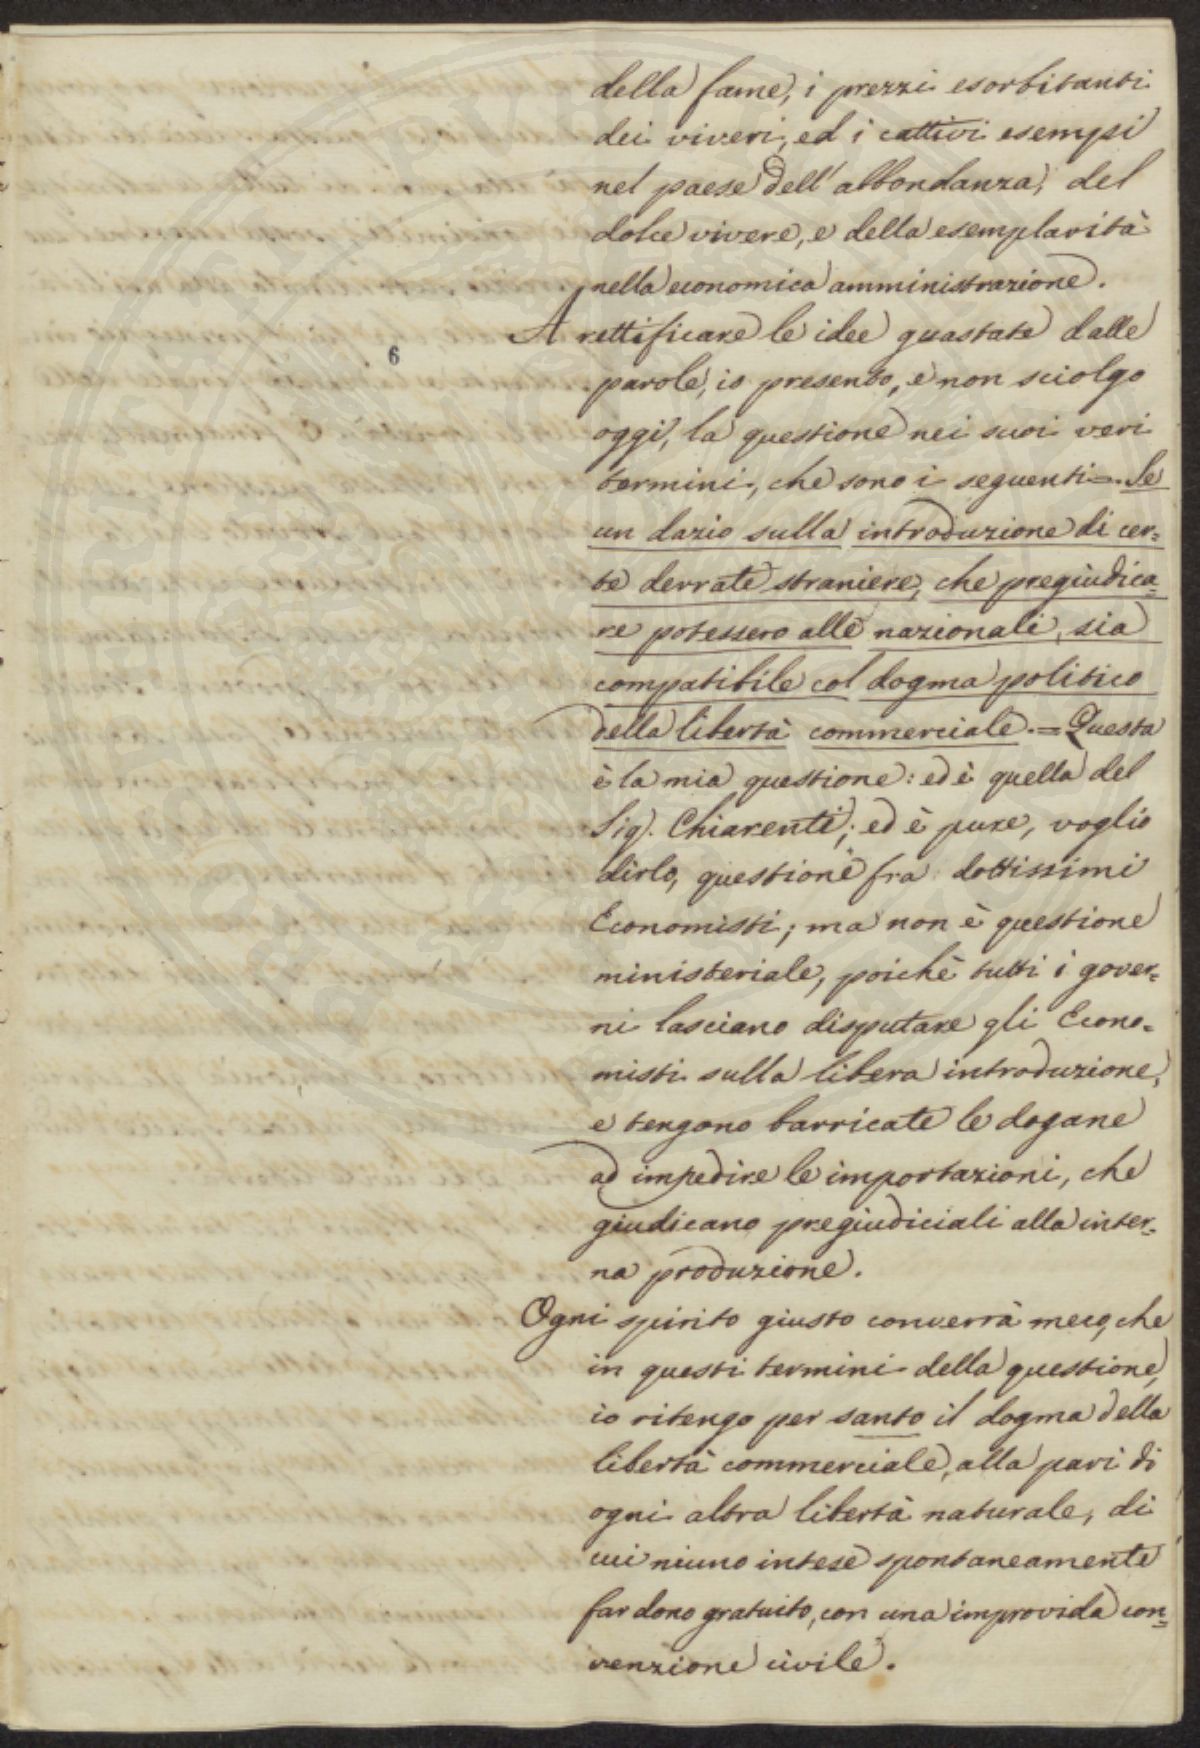 della fame, i prezzi esorbitanti
dei viveri, ed i cattivi esempj
nel paese dell'abbondanza, del
dolce vivere, e della esemplarità
nella economica amministrazione.
A rettificare le idee guastate dalle
6
parole, io presento, e non sciolgo
oggi, la questione nei suoi veri
termini, che sono i seguenti =. Se
un dazio sulla introduzione di cer=
te derrate straniere, che pregiudica=
re potessero alle nazionali, sia
compatibile col dogma politico
della libertà commerciale. = Questa
è la mia questione: ed è quella del
Sig. Chiarenti; ed è pure, voglio
dirlo, questione fra dottissimi
Economisti; ma non è questione
ministeriale, poichè tutti i gover=
ni lasciano disputare gli Econo=
misti sulla libera introduzione,
e tengono barricate le dogane
ad impedire le importazioni, che
giudicano pregiudiciali alla inter=
na produzione.
Ogni spirito giusto converrà meco, che
in questi termini della questione,
io ritengo per santo il dogma della
libertà commerciale, alla pari di
ogni altra libertà naturale, di
cui niuno intese spontaneamente
far dono gratuito, con una improvida con=
venzione civile.